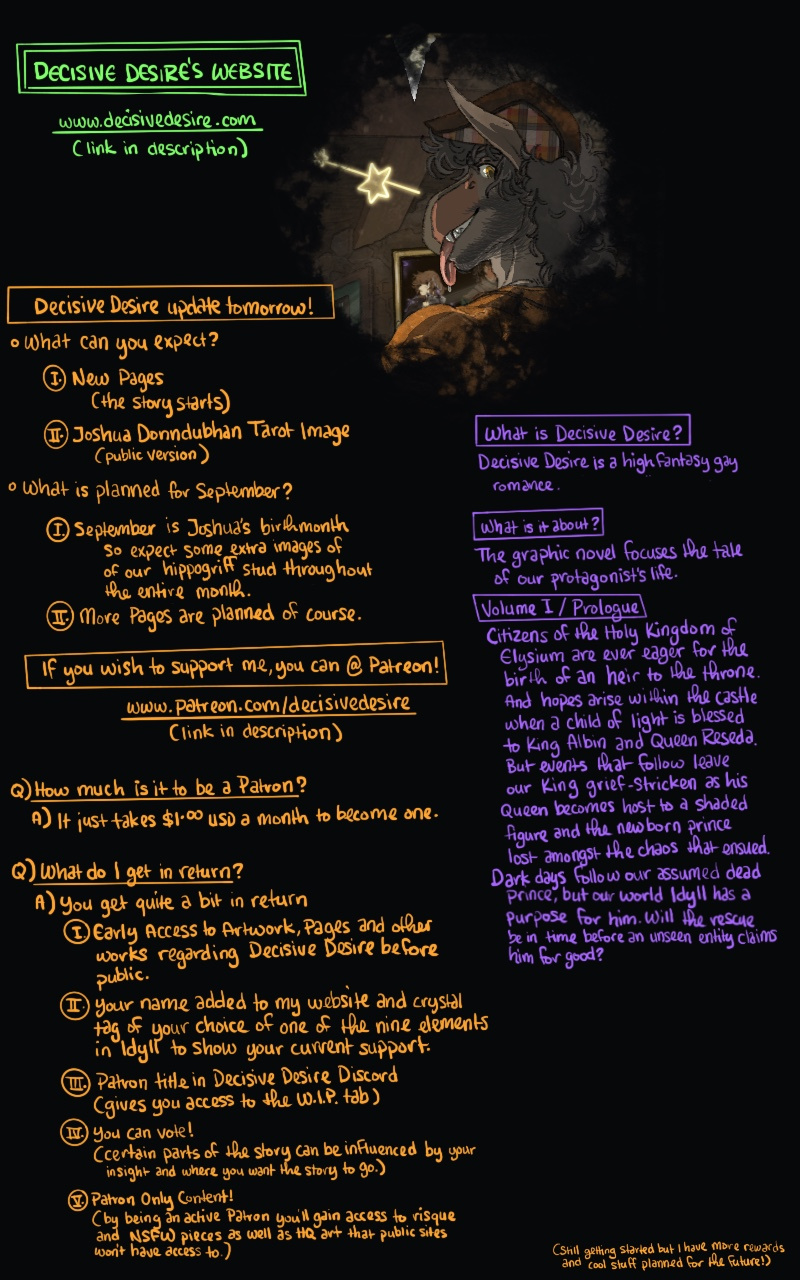 DECISIVE DESIRE'S WEBSITE
www.decisivedesire.com
(link in description)
Decisive Desire update tomorrow!
What can you expect?
I. New Pages
(the story starts)
II. Joshua Donndubhan Tarot Image
(public version)
What is planned for September?
I. September is Joshua's birthmonth
so expect some extra images of
of our hippogriff stud throughout
the entire month.
II. More Pages are planned of course.
If you wish to support me, you can @ Patreon!
www.patreon.com/decisivedesire
(link in description)
Q) How much is it to be a Patron?
A) It just takes $1.00 USD a month to become one.
Q) What do I get in return?
A) You get quite a bit in return
I. Early Access to Artwork, Pages and other
works regarding Decisive Desire before
public.
II. Your name added to my website and crystal
tag of your choice of one of the nine elements
in Idyll to show your current support.
III. Patron title in Decisive Desire Discord
(gives you access to the W.I.P. tab)
IV. You can vote!
(certain parts of the story can be influenced by your
insight and where you want the story to go.)
V. Patron Only Content!
(by being an active Patron you'll gain access to risque
and NSFW pieces as well as HQ art that public sites
won't have access to.)
What is Decisive Desire?
Decisive Desire is a high fantasy gay
romance.
What is it about?
The graphic novel focuses the tale
of our protagonist's life.
Volume I / Prologue
Citizens of the Holy Kingdom of
Elysium are ever eager for the
birth of an heir to the throne.
And hopes arise within the castle
when a child of light is blessed
to King Albin and Queen Reseda.
But events that follow leave
our King grief-stricken as his
Queen becomes host to a shaded
figure and the newborn prince
lost amongst the chaos that ensued.
Dark days follow our assumed dead
prince, but our world Idyll has a
purpose for him. Will the rescue
be in time before an unseen entity claims
him for good?
(Still getting started but I have more rewards
and cool stuff planned for the future!)